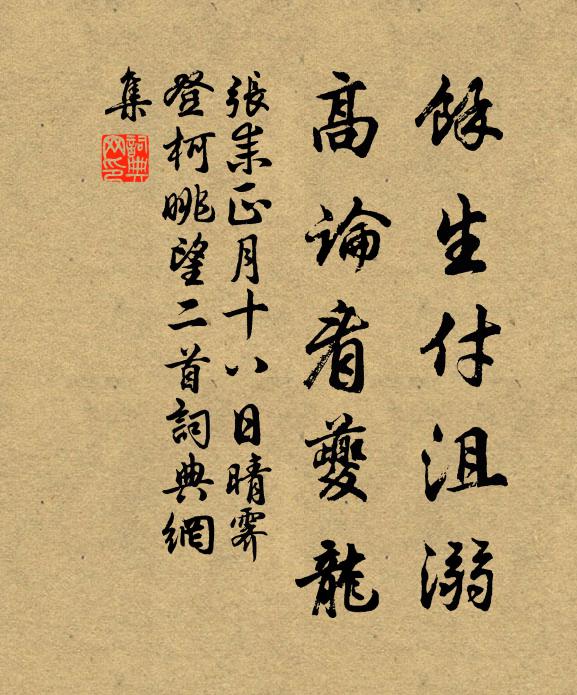 餘生付沮溺
高論看夔龍
張耒正月十八日晴霽
登柯眺望二首詞典網
集
詞典網印